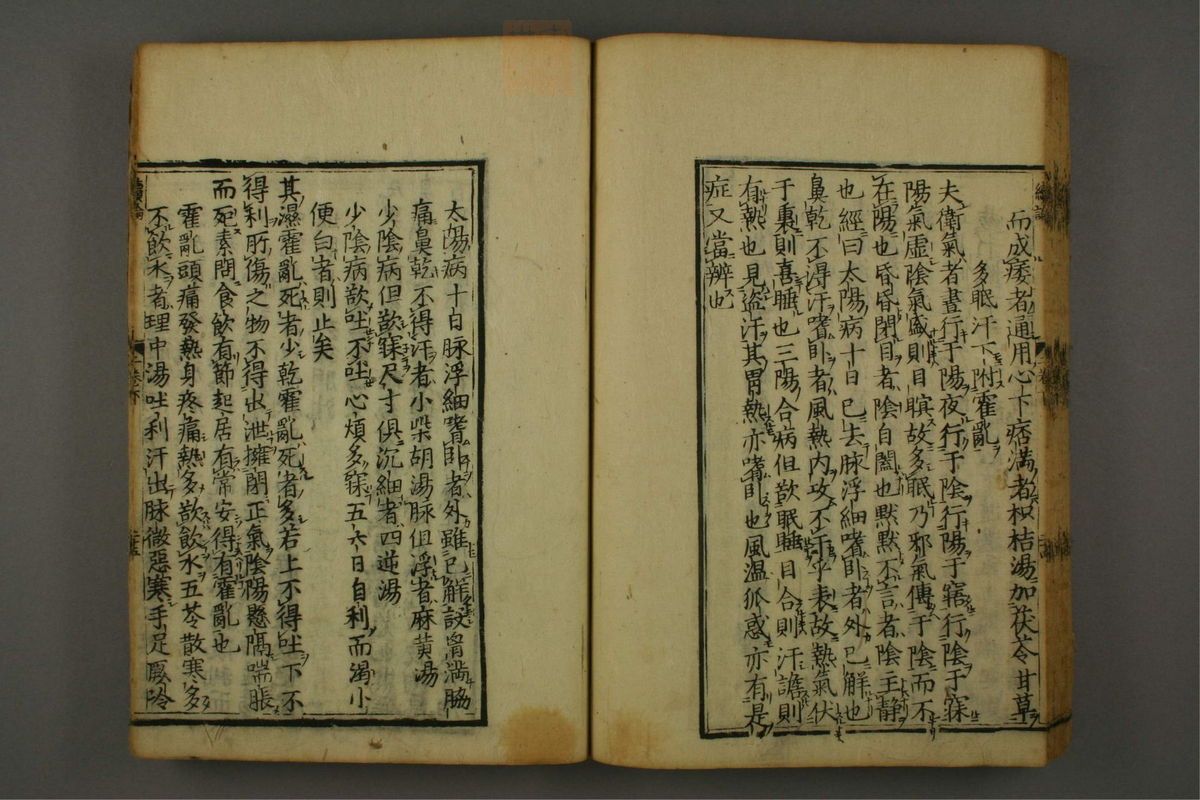 而成痿者通用心下痞滿者枳桔湯加茯苓甘草
多眠汗下附霍亂
夫衛氣者晝行于陽夜行于陰行陽于寤行陰于寐
陽氣虛陰氣盛則目瞑故多眠乃邪氣傳于陰而不
在陽也昏昏閉目者陰自闔也默默不言者陰主靜
也經曰太陽病十日已去脉浮細嗜卧者外已解也
鼻乾不淂汗嗜卧者風熱内攻不干乎表故熱氣伏
于裏則喜睡也三陽合病但欲眠睡目合則汗譫則
有熱也見盜汗其胃熱亦嗜卧也風温狐惑亦有是
症又當辨也
太陽病十日脉浮細嗜卧者外雖已解設胷滿脇
痛鼻乾不得汗者小柴胡湯脉但浮者麻黄湯
少陰病但欲寐尺寸俱沉細者四逆湯
少陰病欲吐不吐心煩多寐五六日自利而渴小
便白者則止矣
其濕霍亂死者少乾霍亂死者多若上不得吐下不
得利所傷之物不得出泄擁閉正氣陰陽懸隔喘脹
而死素問食飲有節起居有常安得有霍亂也
霍亂頭痛發熱身疼痛熱多欲飲水五苓散寒多
不飲水者理中湯吐利汗出脉微惡寒手足厥冷